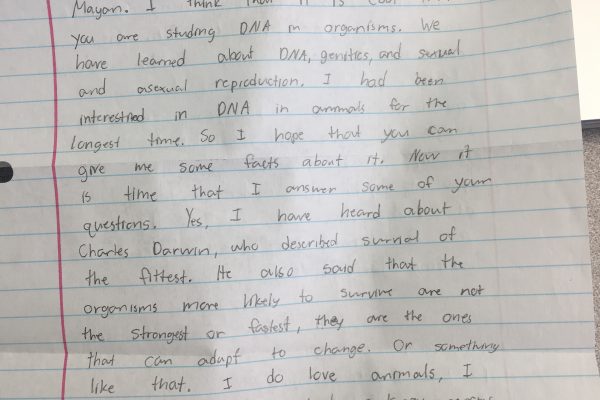 Mayan. I think that it is cool that
you are studing DNA in organisms. We
have learned about DNA, genitics, and sexual
and asexual reproduction. I had been
interestned in DNA in animals for the
longest time. So I hope that you can
give me some facts about it. Now it
is time that I answer some of your
questions. Yes, I have heard about
Charles Darwin, who described surnal of
the fittest. He also said that the
organisms more likely to survive are not
the strongest or fastest, they are the ones
that can adapt to change. Or something
like that. I do love animals, I